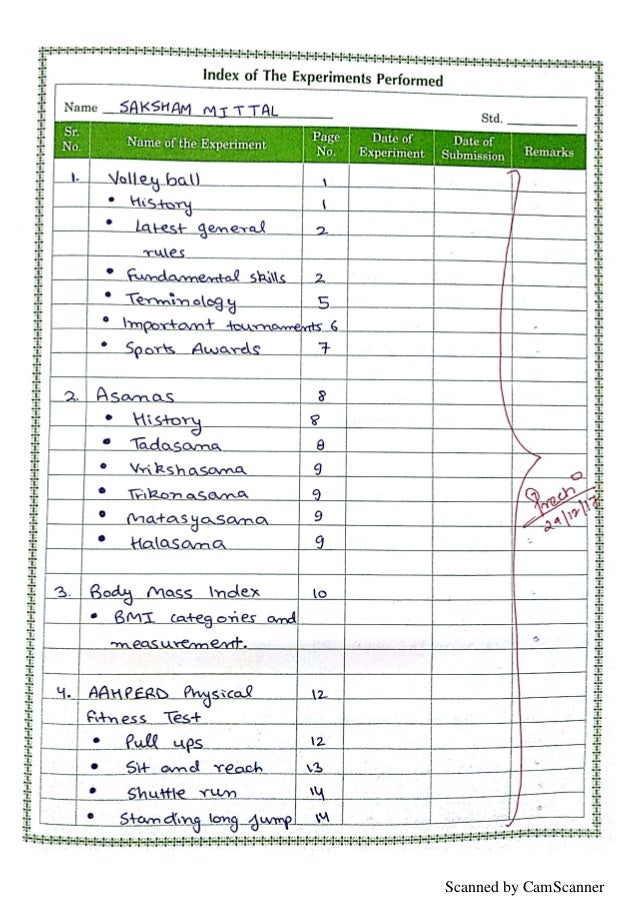 Index of The Experiments Performed
Name SAKSHAM MITTAL
Std.
Sr. No. Name of the Experiment Page No. Date of Experiment Date of Submission Remarks
1. Volleyball 1
• History 1
• Latest general 2
rules
• Fundamental skills 2
• Terminology 5
• Important tournaments 6
• Sports Awards 7
2. Asanas 8
• History 8
• Tadasana 8
• Vrikshasana 9
• Trikonasana 9
• Matasyasana 9
• Halasana 9
29/12/17
3. Body Mass Index 10
• BMI categories and
measurement.
4. AAHPERD Physical 12
fitness Test
• Pull ups 12
• Sit and reach 13
• Shuttle run 14
• Standing long jump 14
Scanned by CamScanner